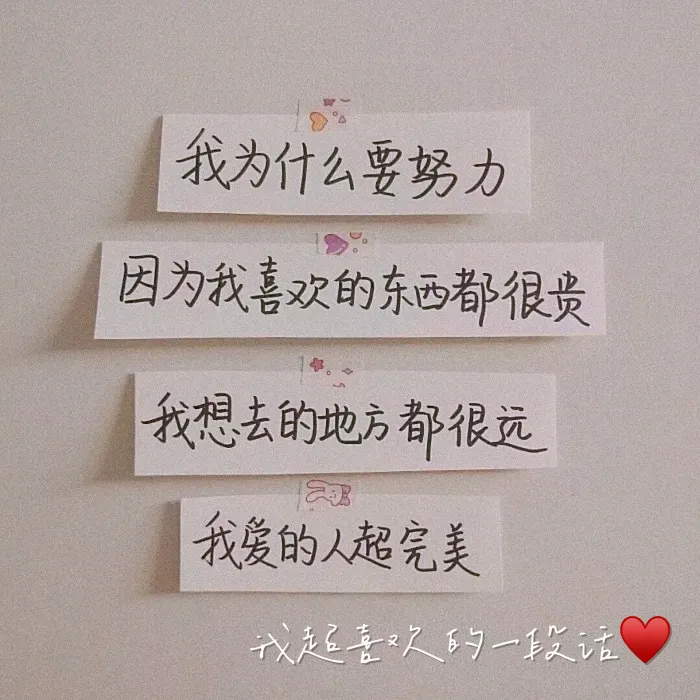 我为什么要努力
因为我喜欢的东西都很贵
我想去的地方都很远
我爱的人超完美
我超喜欢的一段话♥️